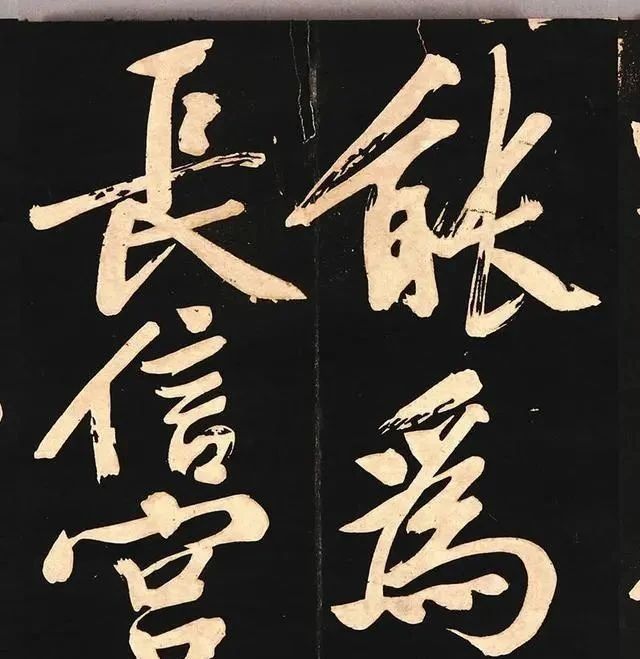 能爲
長信宮